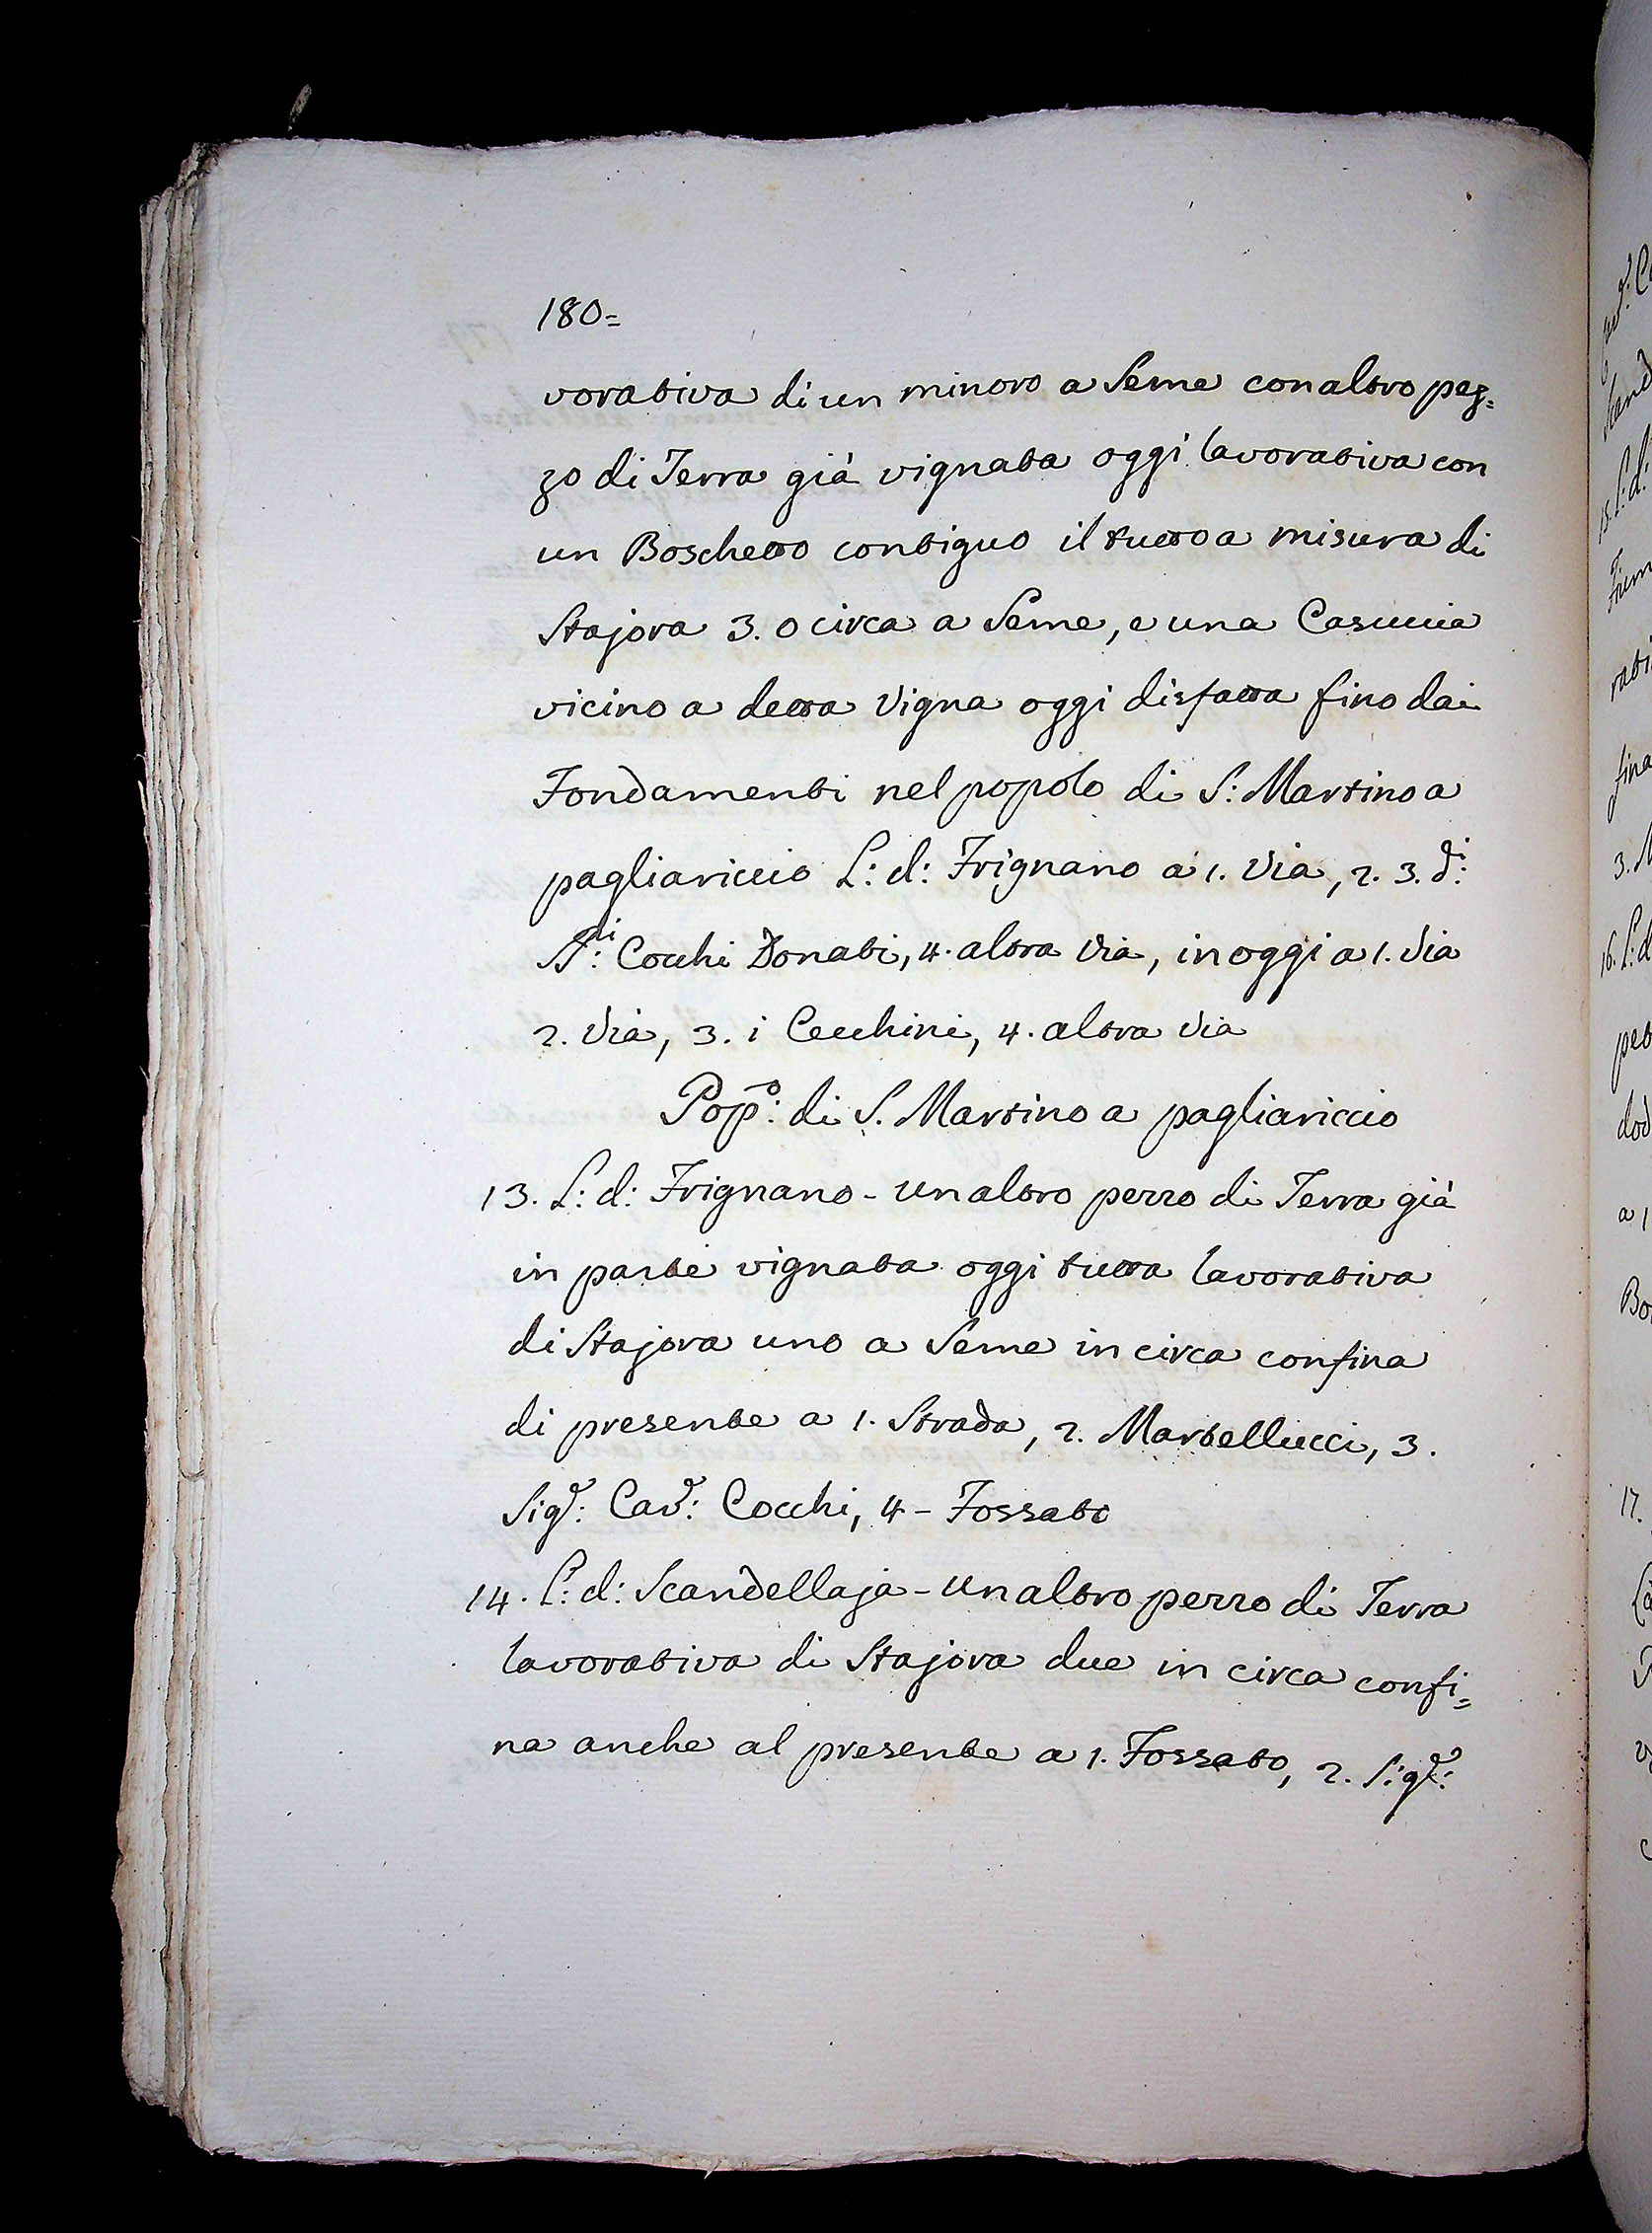 180=
vorativa di un minoro a Seme con altro pez=
zo di Terra già vignata oggi lavorativa con
un Boschetto contiguo il tutto a misura di
Stajora 3. o circa a Seme, e una Casuccia
vicino a detta Vigna oggi disfatta fino dai
Fondamenti nel popolo di S: Martino a
pagliariccio L: d: Frignano a 1. Via, 2. 3. di:
Cocchi Donati, 4. altra Via, in oggi a 1. Via
2. Via, 3. i Cecchini, 4. altra Via
Pop:o di S. Martino a pagliariccio
13. L: d: Frignano - un altro pezzo di Terra già
in parte vignata oggi tutta lavorativa
di Stajora uno a Seme in circa confina
di presente a 1. Strada, 2. Martellucci, 3.
Sig:e Cav:e Cocchi, 4 - Fossato
14. L: d: Scandellaja - un altro pezzo di Terra
lavorativa di Stajora due in circa confi=
na anche al presente a 1. Fossato, 2. Sig:e